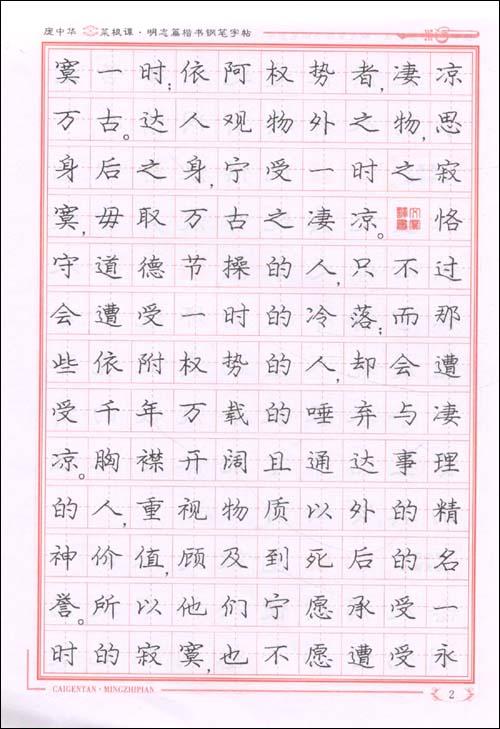 庞中华 菜根谭·明志篇楷书钢笔字帖
寞一时；依阿权势者，凄凉
万古。达人观物外之物，思
身后之身，宁受一时之寂
寞，毋取万古之凄凉。 恪
守道德节操的人，只不过
会遭受一时的冷落；而那
些依附权势的人，却会遭
受千年万载的唾弃与凄
凉。胸襟开阔且通达事理
的人，重视物质以外的精
神价值，顾及到死后的名
誉。所以他们宁愿承受一
时的寂寞，也不愿遭受永
CAIGENTAN·MINGZHIPIAN 2